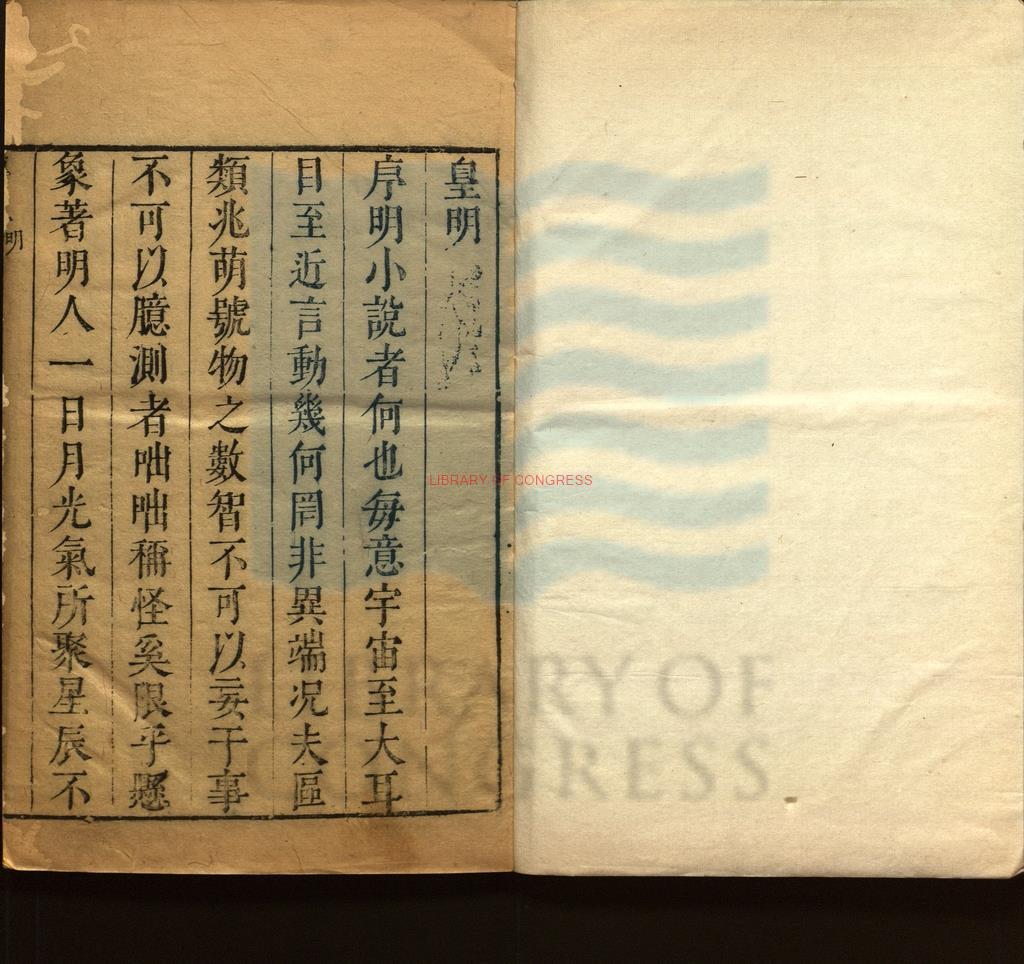 皇明
序明小說者何也每意宇宙至大耳
目至近言動幾何罔非異端况夫區
類兆萌號物之數智不可以妄干事
不可以臆測者咄咄稱怪奚限乎懸
象著明人一日月光氣所聚星辰不
明
LIBRARY OF CONGRESS
LIBRARY OF
CONGRESS